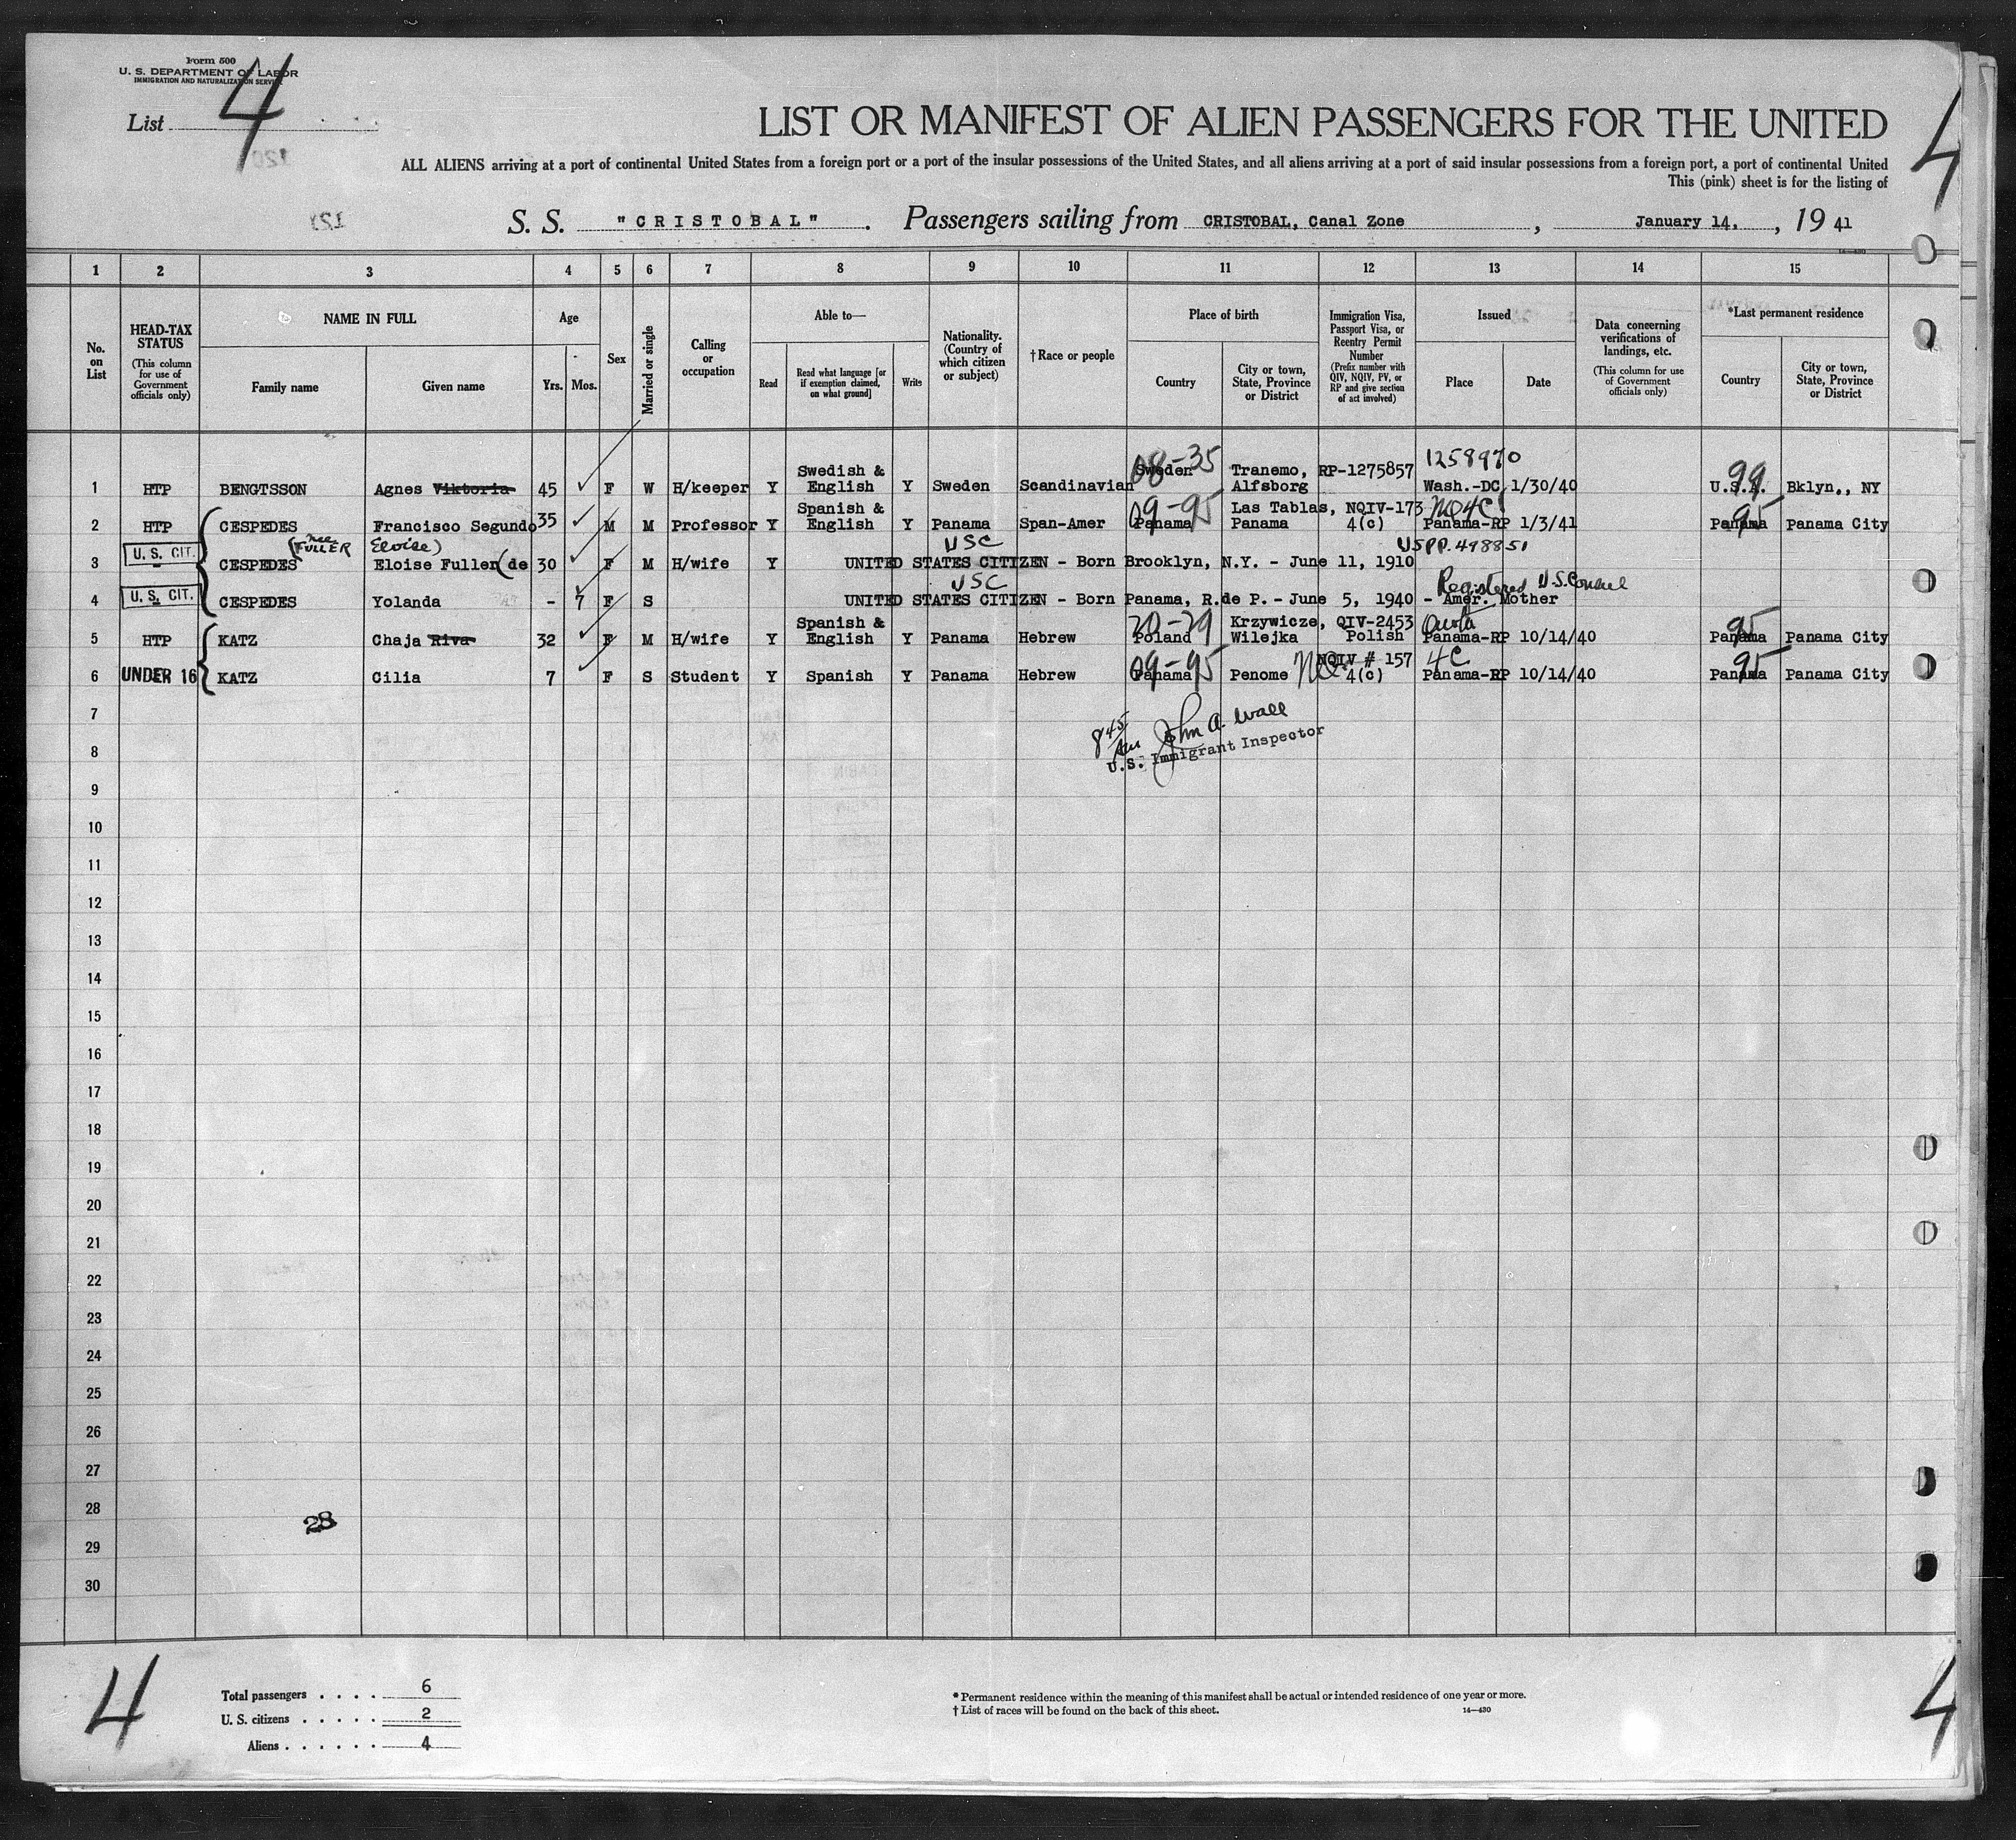 Form 500
U. S. DEPARTMENT OF LABOR
IMMIGRATION AND NATURALIZATION SERVICE
List 4
4
LIST OR MANIFEST OF ALIEN PASSENGERS FOR THE UNITED
ALL ALIENS arriving at a port of continental United States from a foreign port or a port of the insular possessions of the United States, and all aliens arriving at a port of said insular possessions from a foreign port, a port of continental United
This (pink) sheet is for the listing of
S. S. "CRISTOBAL". Passengers sailing from CRISTOBAL, Canal Zone, January 14, , 19 41
14—430
1 2 3 4 5 6 7 8 9 10 11 12 13 14 15
No. on List
HEAD-TAX STATUS (This column for use of Government officials only)
NAME IN FULL
Family name
Given name
Age
Yrs. Mos.
Sex
Married or single
Calling or occupation
Able to—
Read
Read what language [or if exemption claimed, on what ground]
Write
Nationality. (Country of which citizen or subject)
†Race or people
Place of birth
Country
City or town, State, Province or District
Immigration Visa, Passport Visa, or Reentry Permit Number (Prefix number with QIV, NQIV, PV, or RP and give section of act involved)
Issued
Place
Date
Data concerning verifications of landings, etc. (This column for use of Government officials only)
*Last permanent residence
Country
City or town, State, Province or District
08-35 1258970 99
Swedish & Sweden Tranemo, RP-1275857
1 HTP BENGTSSON Agnes Viktoria 45 F W H/keeper Y English Y Sweden Scandinavian Alfsborg Wash.-DC 1/30/40 U.S.A. Bklyn., NY
Spanish & 09-95 Las Tablas, NQIV-173 NQ4C 95
2 HTP CESPEDES Francisco Segundo 35 M M Professor Y English Y Panama Span-Amer Panama Panama 4(c) Panama-RP 1/3/41 Panama Panama City
(nee FULLER Eloise) USC USPP.498851
3 U. S. CIT. - CESPEDES Eloise Fuller (de 30 F M H/wife Y UNITED STATES CITIZEN - Born Brooklyn, N.Y. - June 11, 1910
USC Registered U.S. Consul
4 U. S. CIT. - CESPEDES Yolanda - 7 F S UNITED STATES CITIZEN - Born Panama, R.de P. - June 5, 1940 - Amer. Mother
Spanish & 20-29 Krzywicze, QIV-2453 Quota 95
5 HTP KATZ Chaja Riva 32 F M H/wife Y English Y Panama Hebrew Poland Wilejka Polish Panama-RP 10/14/40 Panama Panama City
09-95 NQ NQIV # 157 4C 95
6 UNDER 16 KATZ Cilia 7 F S Student Y Spanish Y Panama Hebrew Panama Penome 4(c) Panama-RP 10/14/40 Panama Panama City
7
845 Am John A. Wall
U.S. Immigrant Inspector
8
9
10
11
12
13
14
15
16
17
18
19
20
21
22
23
24
25
26
27
28
28
29
30
4
Total passengers . . . . 6
U. S. citizens . . . . . 2
Aliens . . . . . . 4
* Permanent residence within the meaning of this manifest shall be actual or intended residence of one year or more.
† List of races will be found on the back of this sheet.
14—430
4